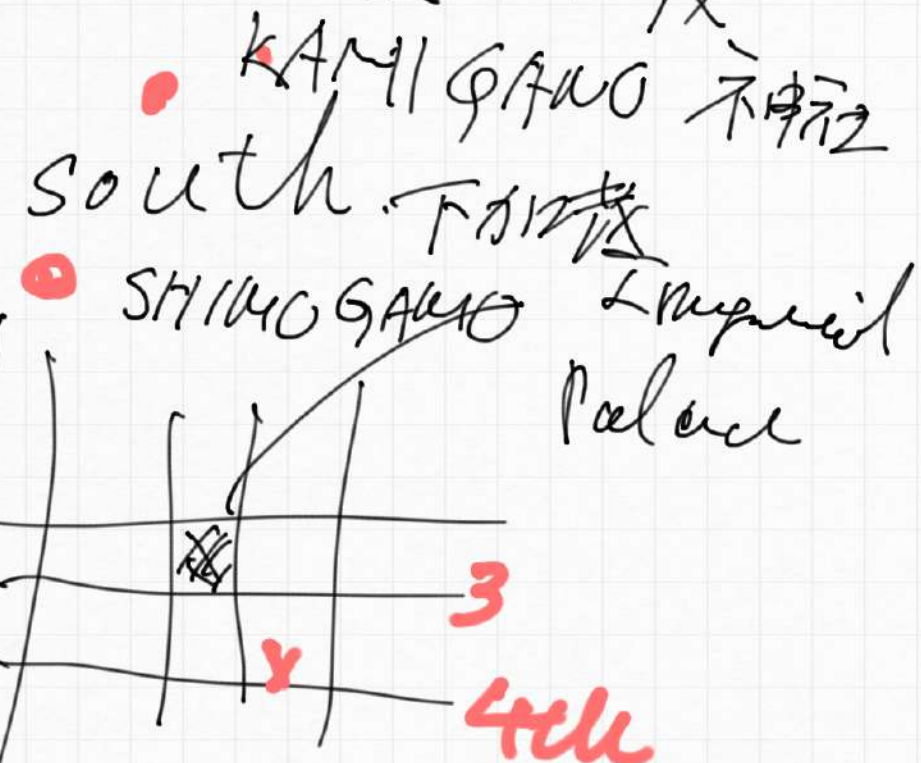 KAMIGAMO 神社
south 下加茂
SHIMOGAMO Imperial
Palace
3
X
4th